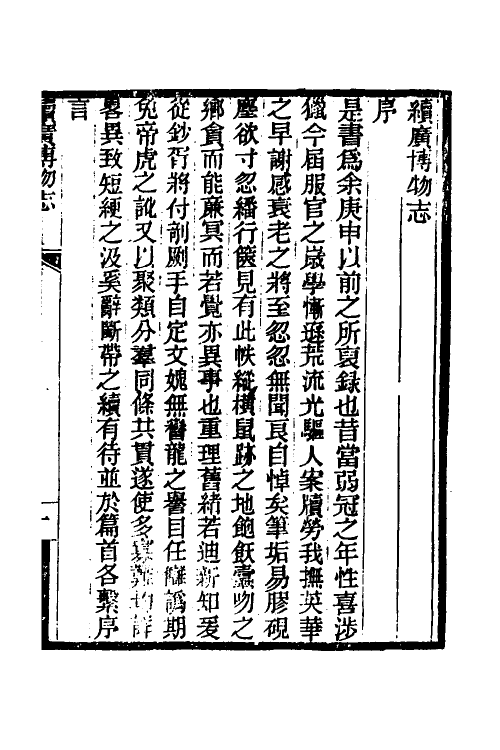 續廣博物志
序
是書爲余庚申以前之所裒録也昔當弱冠之年性喜涉
獵今屆服官之歲學慚遜荒流光驅人案牘勞我撫英華
之早謝感衰老之將至忽忽無聞良自悼矣筆垢易膠硯
塵欲寸忽繙行篋見有此帙縱橫鼠跡之地飽飫蠹吻之
鄉貪而能廉冥而若覺亦異事也重理舊緒若迪新知爰
從鈔胥將付剞劂手自定文媿無雕龍之譽目任讎譌期
免帝虎之訛又以聚類分羣同條共貫遂使多寡
畧異致短綆之汲奚辭斷帶之續有待並於篇首各繫序
言
續廣博物志
一